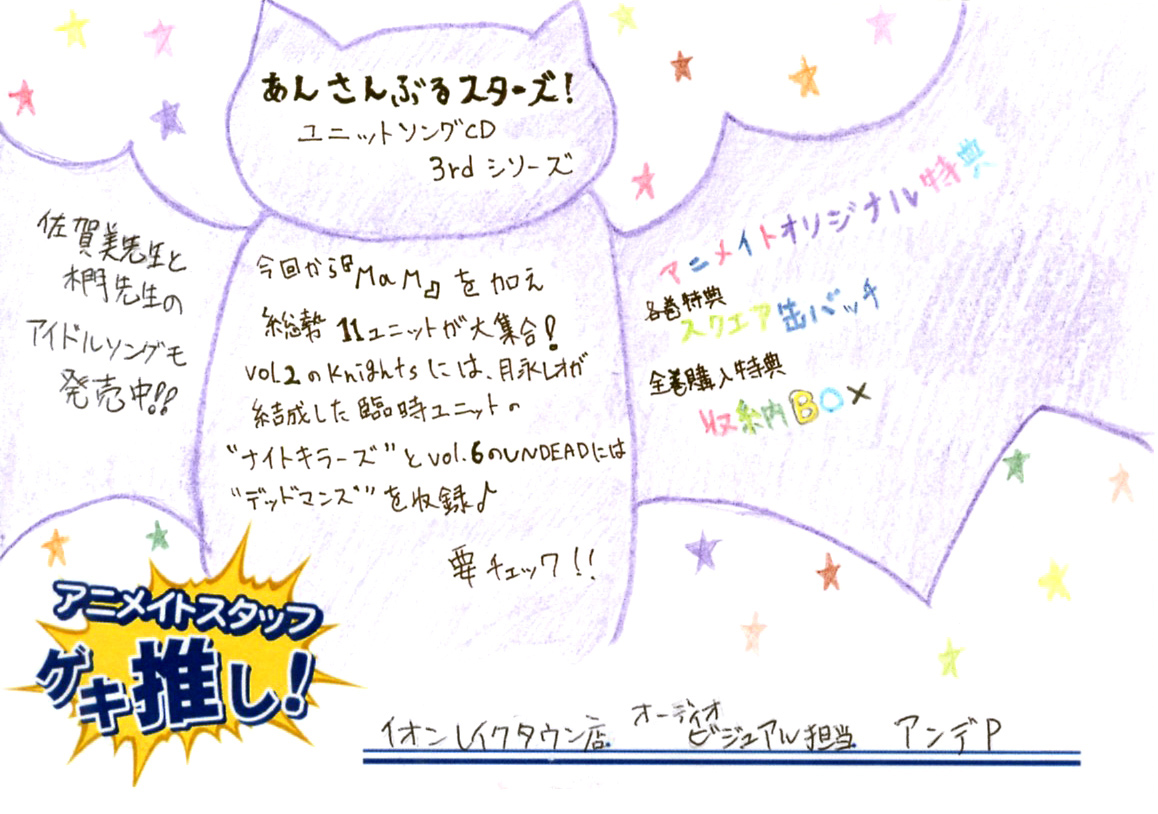 あんさんぶるスターズ!
ユニットソングCD
3rd シリーズ
佐賀美先生と
椚先生の
アイドルソングも
発売中!!
今回から『MaM』を加え
総勢 11ユニットが大集合!
vol.2のKnightsには、月永レオが
結成した臨時ユニットの
“ナイトキラーズ”とvol.6のUNDEADには
“デッドマンズ”を収録♪
要チェック!!
アニメイトオリジナル特典
各巻特典
スクエア缶バッチ
全巻購入特典
収納BOX
アニメイトスタッフ
ゲキ推し!
イオンレイクタウン店 オーディオビジュアル担当 アンデP